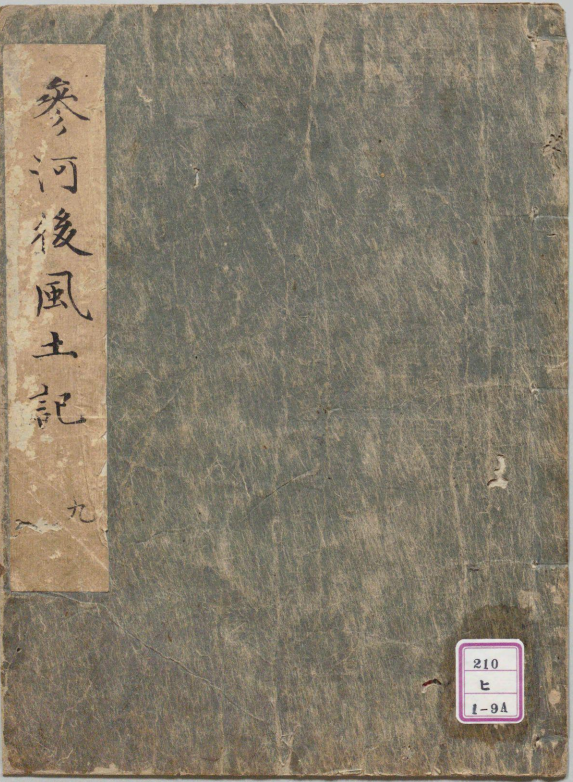 參河後風土記
九
210
ヒ
1-9A